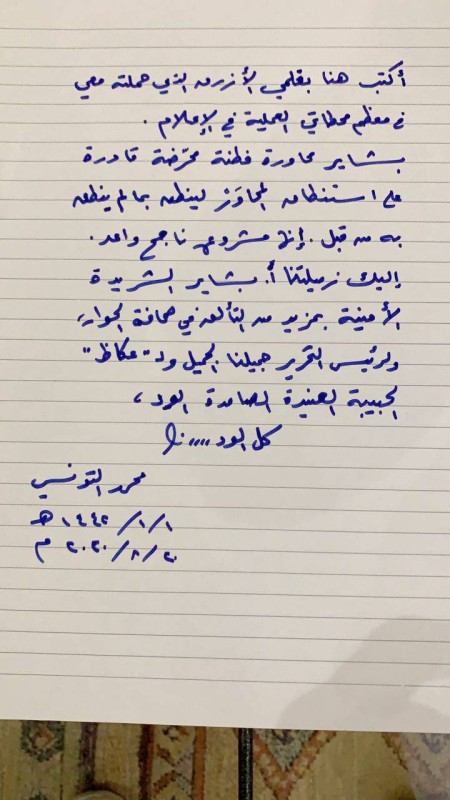 أكتب هنا بقلمي الأزرق الذي حملته معي
في معظم محطاتي العملية في الإعلام .
بشاير محاورة فطنة محرّضة قادرة
على استنطاق المحاوَر لينطق بما لم ينطق
به من قبل . إنها مشروع ناجح واعد .
إليك زميلتنا أ. بشاير الشريدة
الأمنية بمزيد من التألق في صحافة الحوار،
ولرئيس التحرير جميلنا الجميل ولـ "عكاظ"
الحبيبة العنيدة الصامدة الود ،
كل الود ،،،،
محمد التونسي
١ / ١ / ١٤٤٢ هـ
٢٠ / ٨ / ٢٠٢٠ م